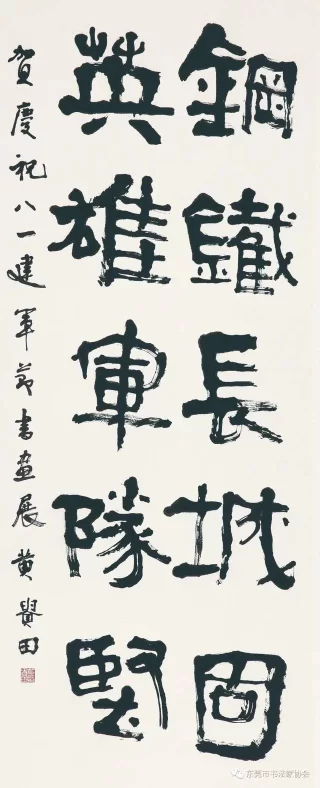 鋼鐵長城固
英雄軍隊堅
賀慶祝八一建軍節書畫展 黄譽田
东莞市书法家协会